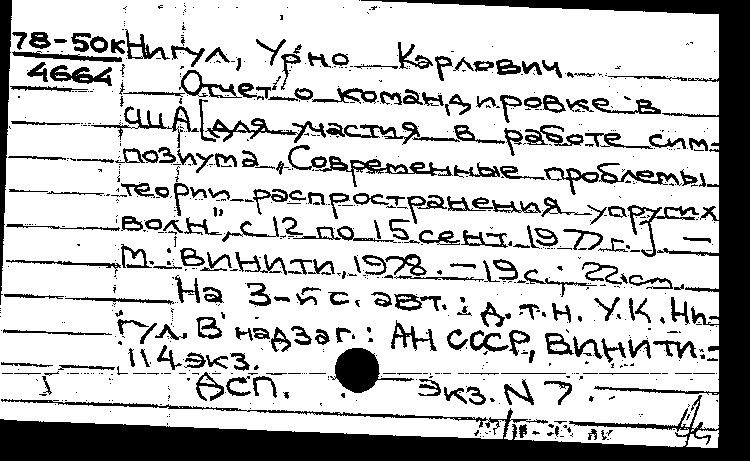 78-50к Нигул, Урно Карлович.
4664
Отчет о командировке в
США [для участия в работе сим-
позиума „Современные проблемы
теории распространения упругих
волн", с 12 по 15 сент. 1977 г.]. —
М.: ВИНИТИ, 1978. — 19 с.; 22 см.
На 3-й с. авт.: д.т.н. У.К. Ни-
гул. В надзаг.: АН СССР, ВИНИТИ. -
114 экз.
ДСП. Экз. N 7.